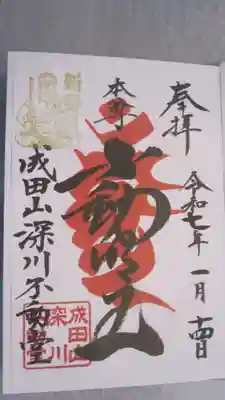 奉拝
令和七年一月十四日
本尊
不動明王
成田山深川不動堂
成田山
深川